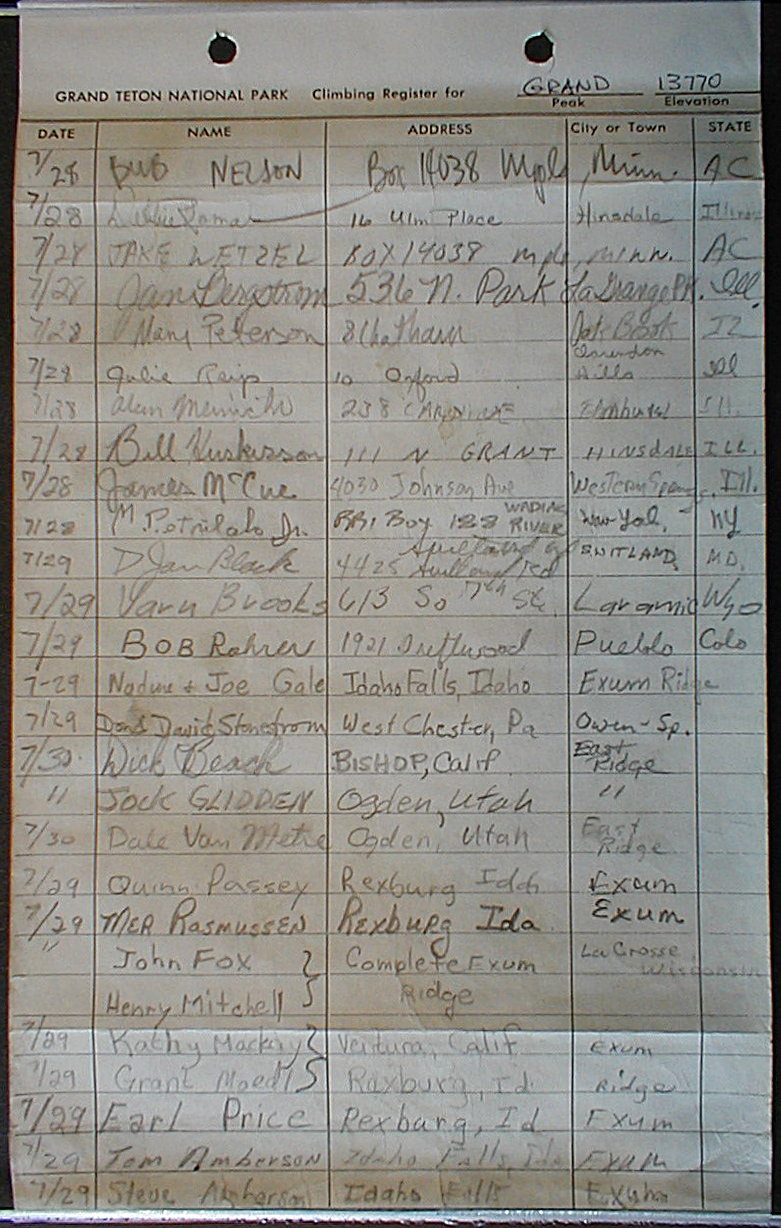 GRAND TETON NATIONAL PARK Climbing Register for GRAND 13770
Peak Elevation
DATE NAME ADDRESS City or Town STATE
7/28 BUB NELSON Box 14038 Mpls, Minn. AC
7/28 16 Ulm Place Hinsdale Illinois
7/28 JAKE WETZEL BOX 14038 mpls, MINN. AC
7/28 Jan Bergstrom 536 N. Park La Grange PK. Ill.
7/28 Mary Peterson 8 Chatham Oak Brook IL
7/28 Julie 10 Oxford Hills Ill
7/28 Alan 238 Elmhurst Ill.
7/28 Bill Huskisson 111 N GRANT HINSDALE ILL.
7/28 James McCue 4030 Johnson Ave Western Springs, Ill.
7/28 M. Petrilak Jr. RR1 Box 188 WADING RIVER New York, NY
7/29 D Jan Black 4425 Suitland Rd SUITLAND MD.
7/29 Vary Brooks 613 So 7th St. Laramie Wyo
7/29 BOB Rohrer 1921 Driftwood Pueblo Colo
7-29 Nadine + Joe Gale Idaho Falls, Idaho Exum Ridge
7/29 Don & David Stonestrom West Chester, Pa Owen-Sp.
7/30 Dick Beach BISHOP, Calif East Ridge
" JOCK GLIDDEN Ogden, Utah "
7/30 Dale Van Metre Ogden, Utah East Ridge
7/29 Quinn Passey Rexburg Idah Exum
7/29 MER RASMUSSEN Rexburg Ida. Exum
" John Fox } Complete Exum La Crosse, Wisconsin
Henry Mitchell } Ridge
7/29 Kathy Mackay } Ventura, Calif Exum
7/29 Grant Moedl } Rexburg, Id. Ridge
7/29 Earl Price Rexburg, Id Exum
7/29 Tom Amberson Idaho Falls, Ida Exum
7/29 Steve Idaho Falls Exum